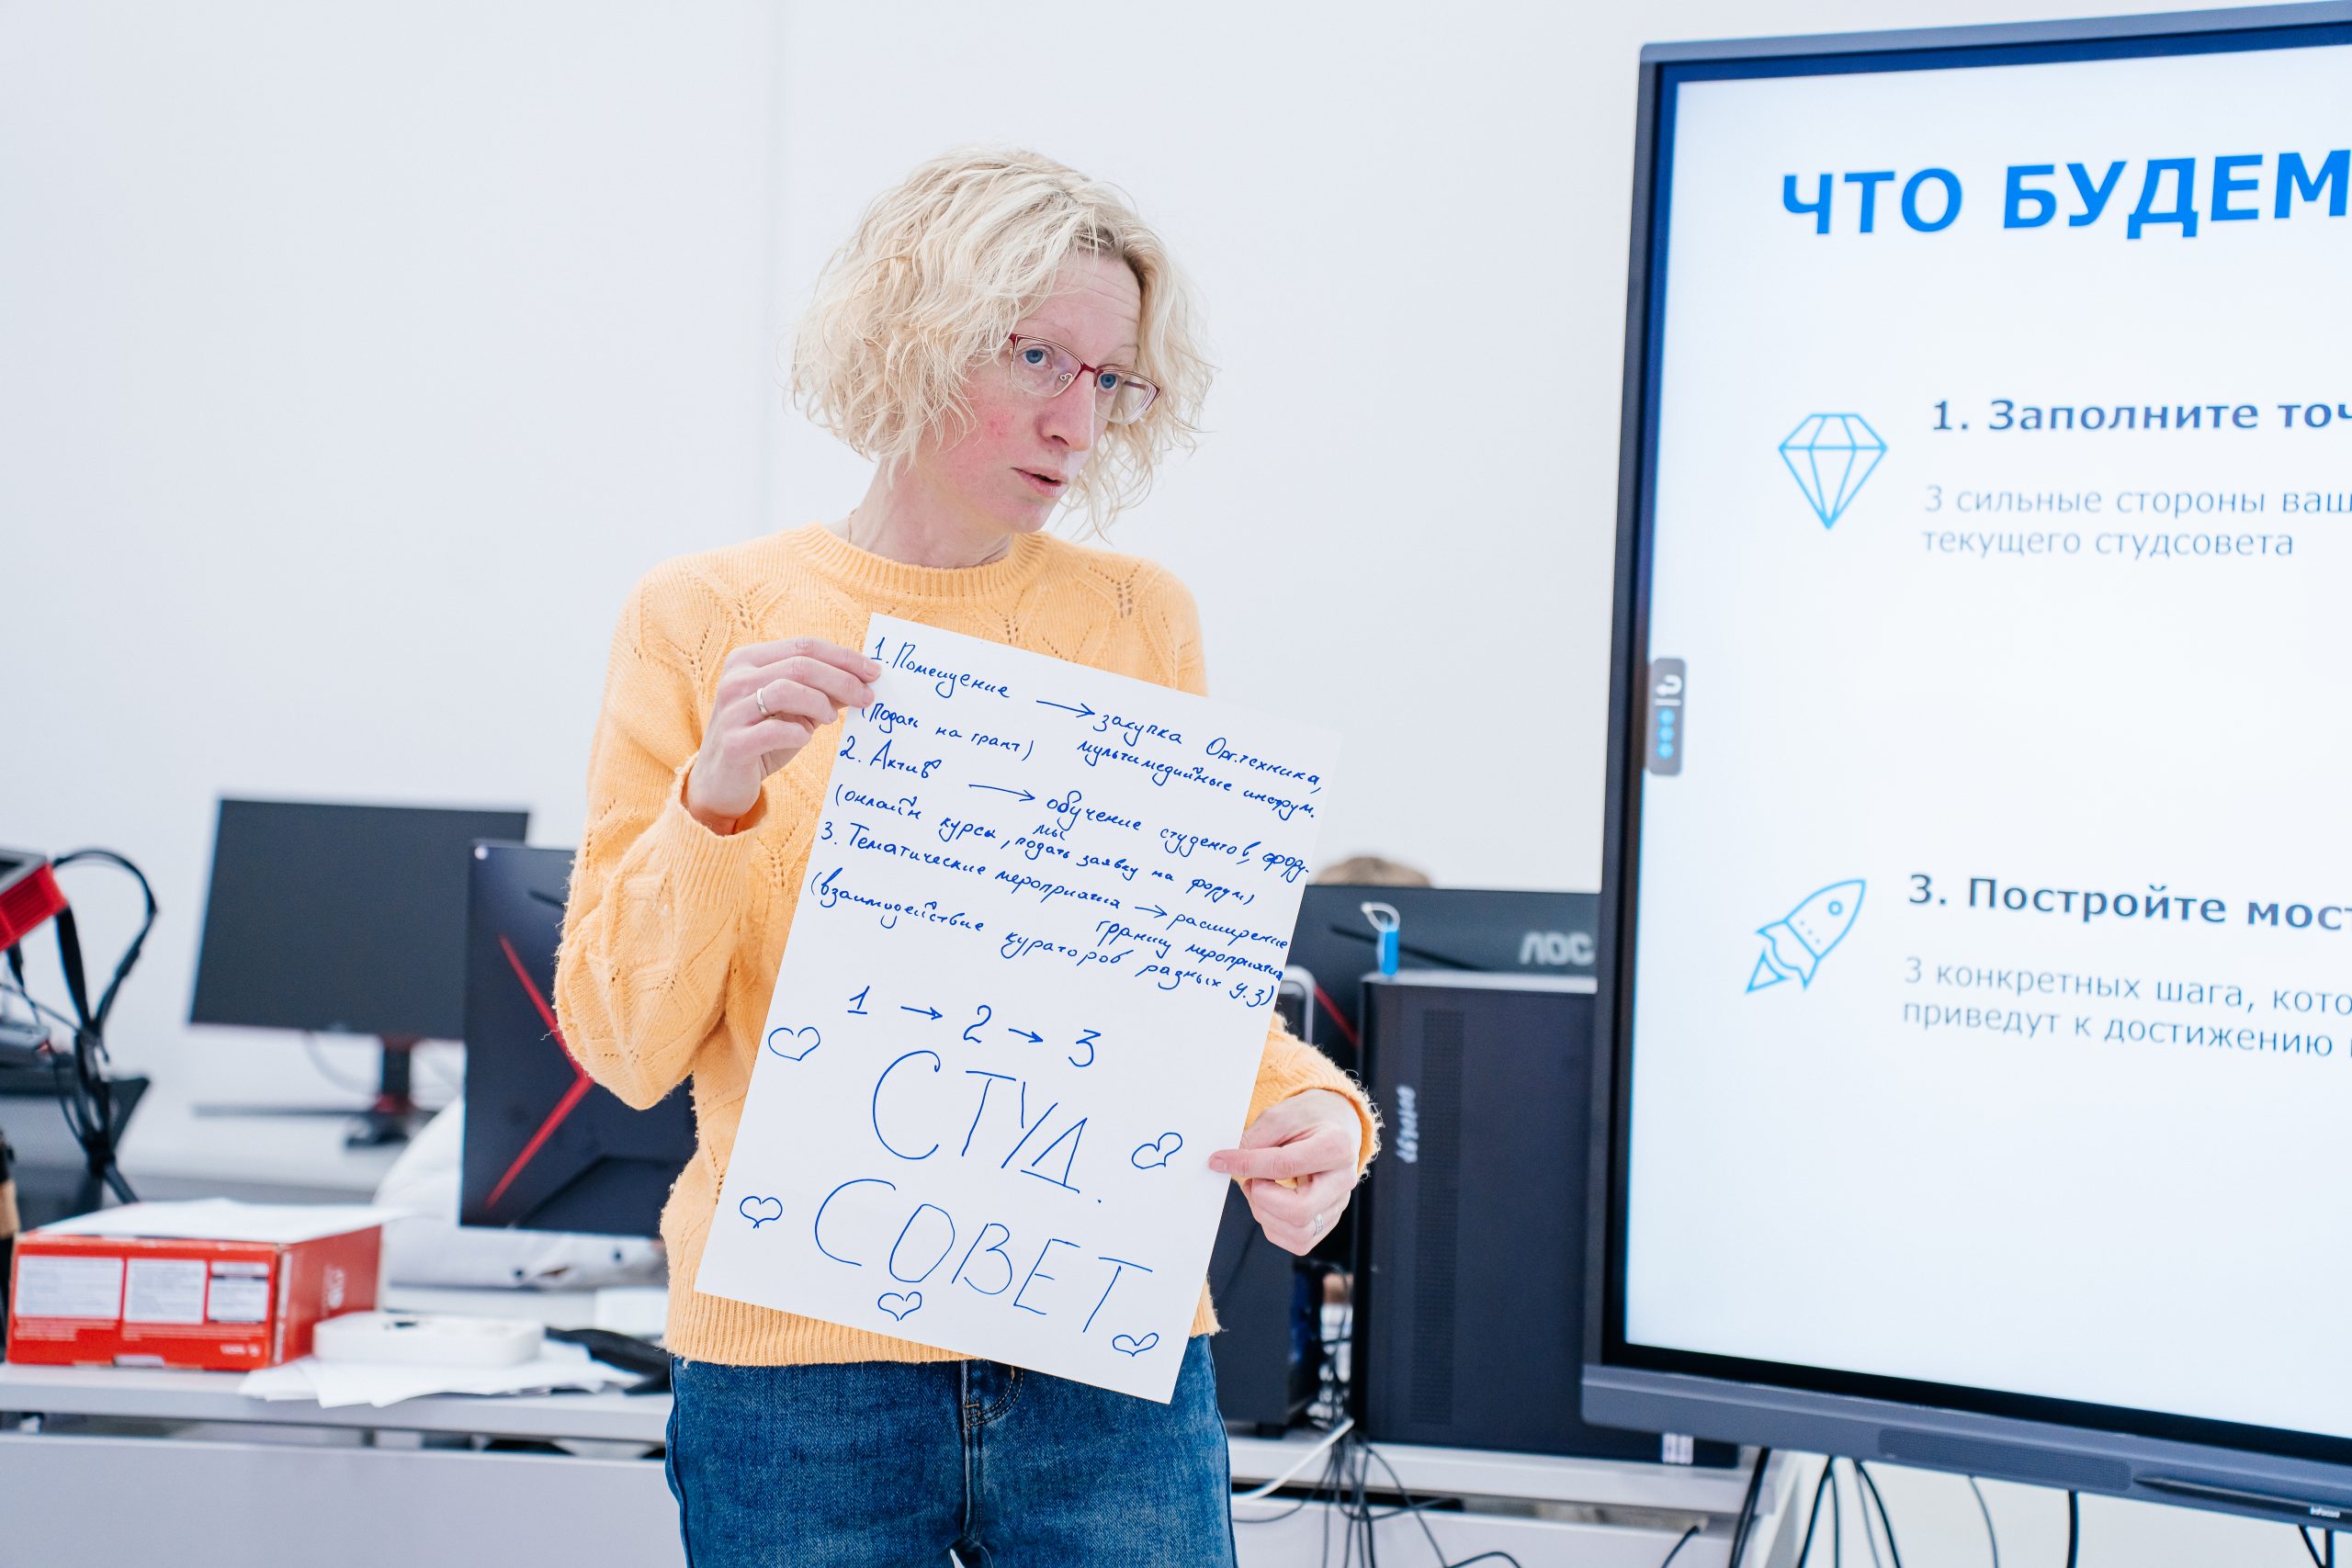 1. Помещение → закупка Орг.техника,
(Подать на грант) мультимедийные инструм.
2. Актив → обучение студентов, фору-
мы
(онлайн курсы, подать заявку на форум)
3. Тематические мероприятия → расширение
границ мероприятия
(взаимодействие кураторов разных у.з)
1 → 2 → 3
СТУД.
СОВЕТ
ЧТО БУДЕМ
1. Заполните точ
3 сильные стороны ваш
текущего студсовета
3. Постройте мост
3 конкретных шага, кото
приведут к достижению
AOC